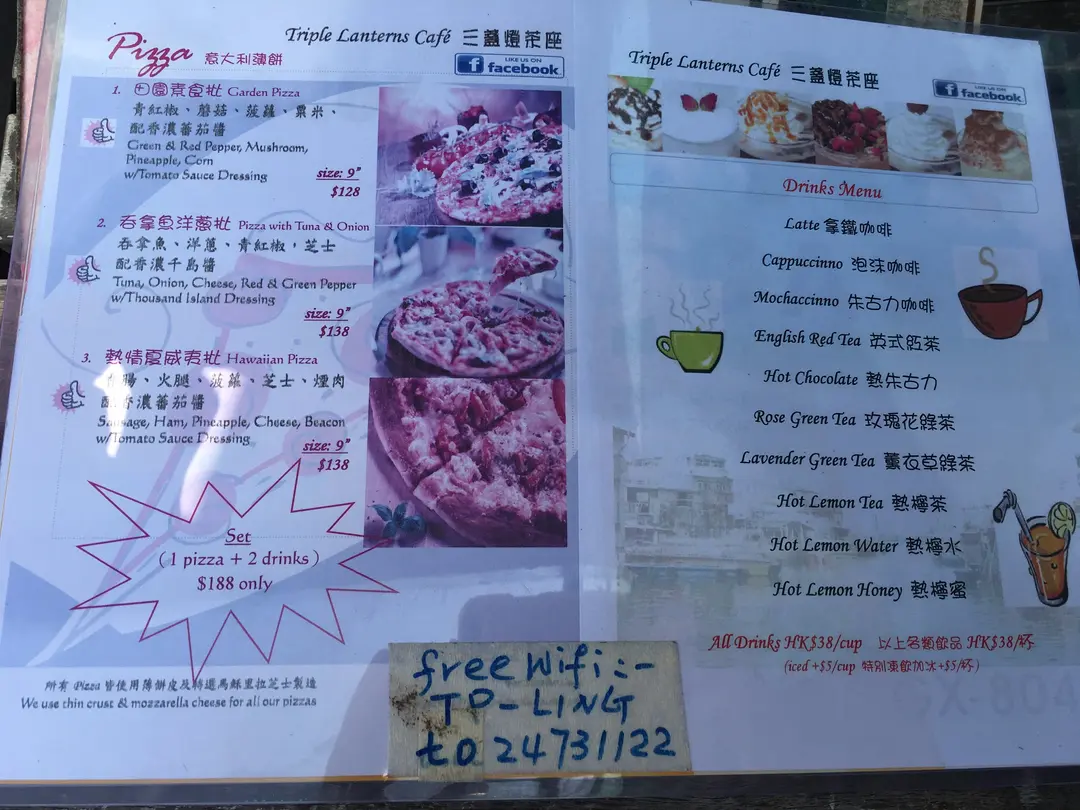 Triple Lanterns Café 三盞燈茶座
LIKE US ON
facebook
Pizza 意大利薄餅
1. 田園素食批 Garden Pizza
青紅椒、蘑菇、菠蘿、粟米、
配香濃蕃茄醬
Green & Red Pepper, Mushroom,
Pineapple, Corn
w/Tomato Sauce Dressing
size: 9"
$128
2. 吞拿魚洋蔥批 Pizza with Tuna & Onion
吞拿魚、洋蔥、青紅椒，芝士
配香濃千島醬
Tuna, Onion, Cheese, Red & Green Pepper
w/Thousand Island Dressing
size: 9"
$138
3. 熱情夏威夷批 Hawaiian Pizza
腸、火腿、菠蘿、芝士、煙肉
配香濃蕃茄醬
Sausage, Ham, Pineapple, Cheese, Beacon
w/Tomato Sauce Dressing
size: 9"
$138
Set
( 1 pizza + 2 drinks )
$188 only
所有 Pizza 皆使用薄餅皮及特選馬蘇里拉芝士製造
We use thin crust & mozzarella cheese for all our pizzas
Triple Lanterns Café 三盞燈茶座
LIKE US ON
facebook
Drinks Menu
Latte 拿鐵咖啡
Cappuccinno 泡沫咖啡
Mochaccinno 朱古力咖啡
English Red Tea 英式紅茶
Hot Chocolate 熱朱古力
Rose Green Tea 玫瑰花綠茶
Lavender Green Tea 薰衣草綠茶
Hot Lemon Tea 熱檸茶
Hot Lemon Water 熱檸水
Hot Lemon Honey 熱檸蜜
All Drinks HK$38/cup 以上各類飲品 HK$38/杯
(iced +$5/cup 特別凍飲加冰+$5/杯)
free wifi:-
TP-LING
to 24731122